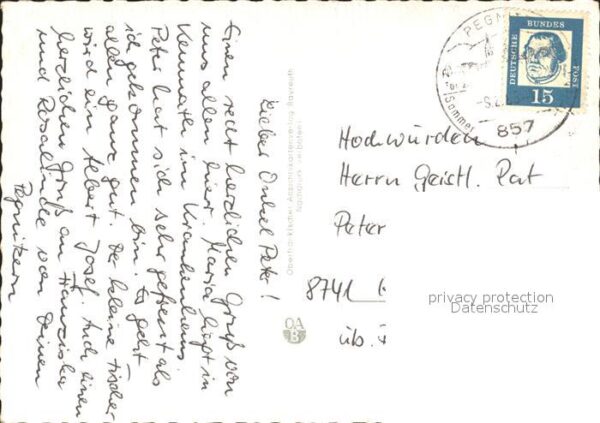 Lieber Onkel Peter!
Einen recht herzlichen Gruß von
uns allen hier. Maria liegt in
Kemnath im Krankenhaus.
Peter hat sich sehr gefreut als
ich gekommen bin. Es geht
allen ganz gut. Der kleine Fischer
wird ein Albert Josef. Auch einen
herzlichen Gruß an Franziska
und Rosalinde von Deinen
Pegnitzern
Oberfränkischer Ansichtskartenverlag Bayreuth
Nachdruck verboten!
OA
B
PEGN
857
DEUTSCHE
BUNDES
POST
15
Hochwürden
Herrn Geistl. Rat
Peter
8741
üb.
privacy protection
Datenschutz